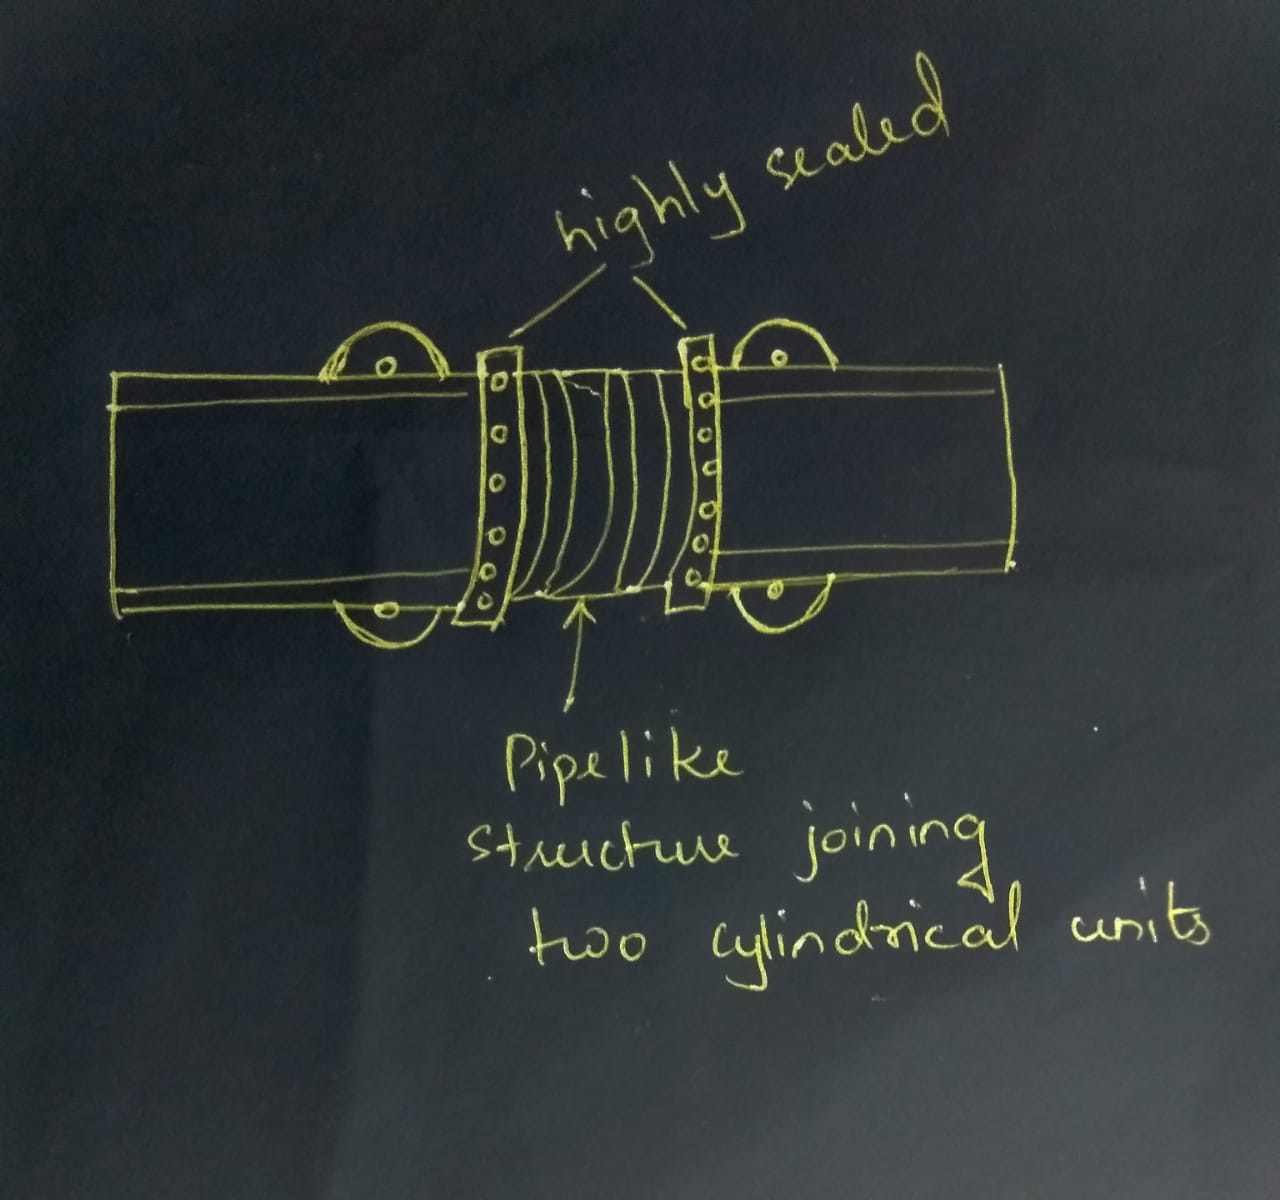 highly sealed
Pipelike
structure joining
two cylindrical units